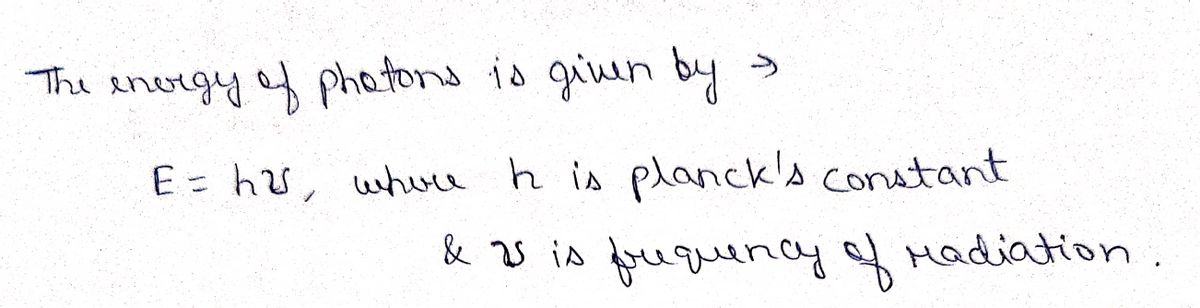 The energy of photons is given by →
E = hν, where h is planck's constant
& ν is frequency of radiation.